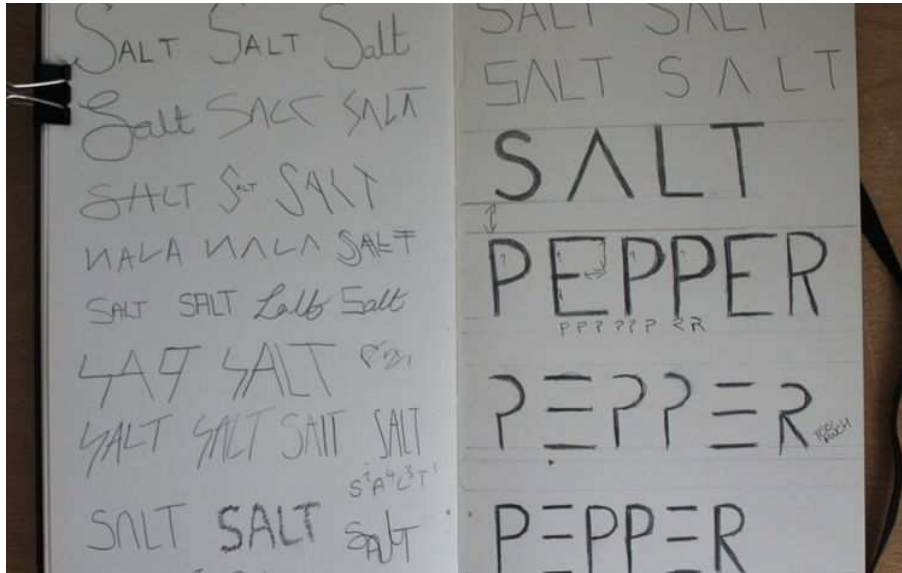 SALT SALT Salt
Salt SALT SALA
SALT SALT SALT
NALA NALA SALT
SALT SALT Salt Salt
SAT SALT
SALT SALT SALT SALT
S²A⁴L³T¹
SALT SALT SALT
SALT SALT
SALT SALT
SALT
PEPPER
P P P P P P R R
PEPPER
TOO MUCH
PEPPER